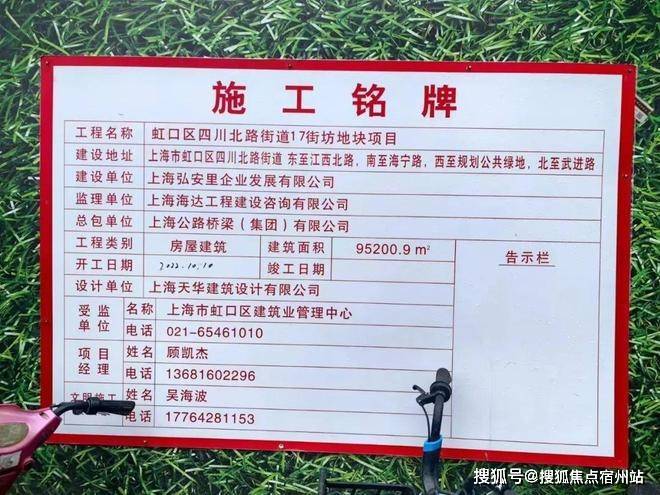 施工铭牌
工程名称 虹口区四川北路街道17街坊地块项目
建设地址 上海市虹口区四川北路街道 东至江西北路，南至海宁路，西至规划公共绿地，北至武进路
建设单位 上海弘安里企业发展有限公司
监理单位 上海海达工程建设咨询有限公司
总包单位 上海公路桥梁（集团）有限公司
工程类别 房屋建筑 建筑面积 95200.9 m² 告示栏
开工日期 2022.10.10 竣工日期
设计单位 上海天华建筑设计有限公司
受监单位 名称 上海市虹口区建筑业管理中心
电话 021-65461010
项目经理 姓名 顾凯杰
电话 13681602296
文明施工 姓名 吴海波
电话 17764281153
搜狐号@搜狐焦点宿州站